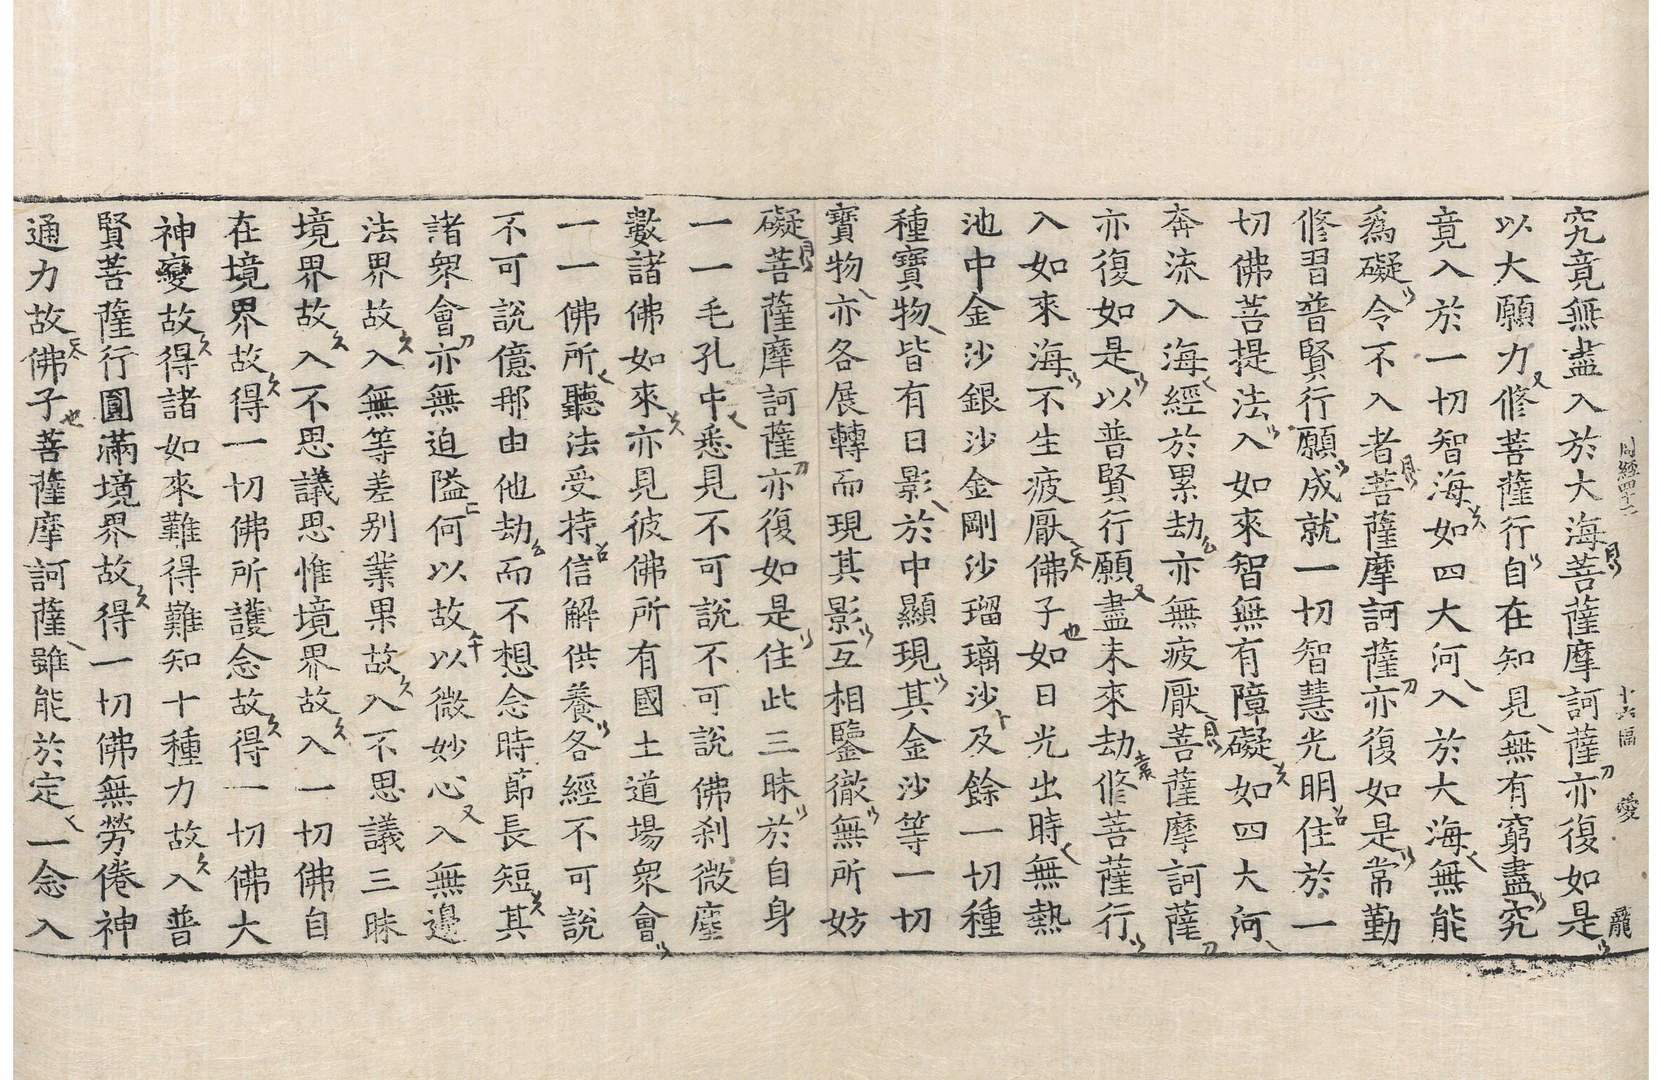 周經四十二 十六幅 愛 龍
究竟無盡入於大海菩薩摩訶薩亦復如是
以大願力修菩薩行自在知見無有窮盡究
竟入於一切智海如四大河入於大海無能
爲礙令不入者菩薩摩訶薩亦復如是常勤
修習普賢行願成就一切智慧光明住於一
切佛菩提法入如來智無有障礙如四大河
奔流入海經於累劫亦無疲厭菩薩摩訶薩
亦復如是以普賢行願盡未來劫修菩薩行
入如來海不生疲厭佛子如日光出時無熱
池中金沙銀沙金剛沙瑠璃沙及餘一切種
種寶物皆有日影於中顯現其金沙等一切
寶物亦各展轉而現其影互相鑒徹無所妨
礙菩薩摩訶薩亦復如是住此三昧於自身
一一毛孔中悉見不可說不可說佛刹微塵
數諸佛如來亦見彼佛所有國土道場眾會
一一佛所聽法受持信解供養各經不可說
不可說億那由他劫而不想念時節長短其
諸眾會亦無迫隘何以故以微妙心入無邊
法界故入無等差別業果故入不思議三昧
境界故入不思議思惟境界故入一切佛自
在境界故得一切佛所護念故得一切佛大
神變故得諸如來難得難知十種力故入普
賢菩薩行圓滿境界故得一切佛無勞倦神
通力故佛子菩薩摩訶薩雖能於定一念入